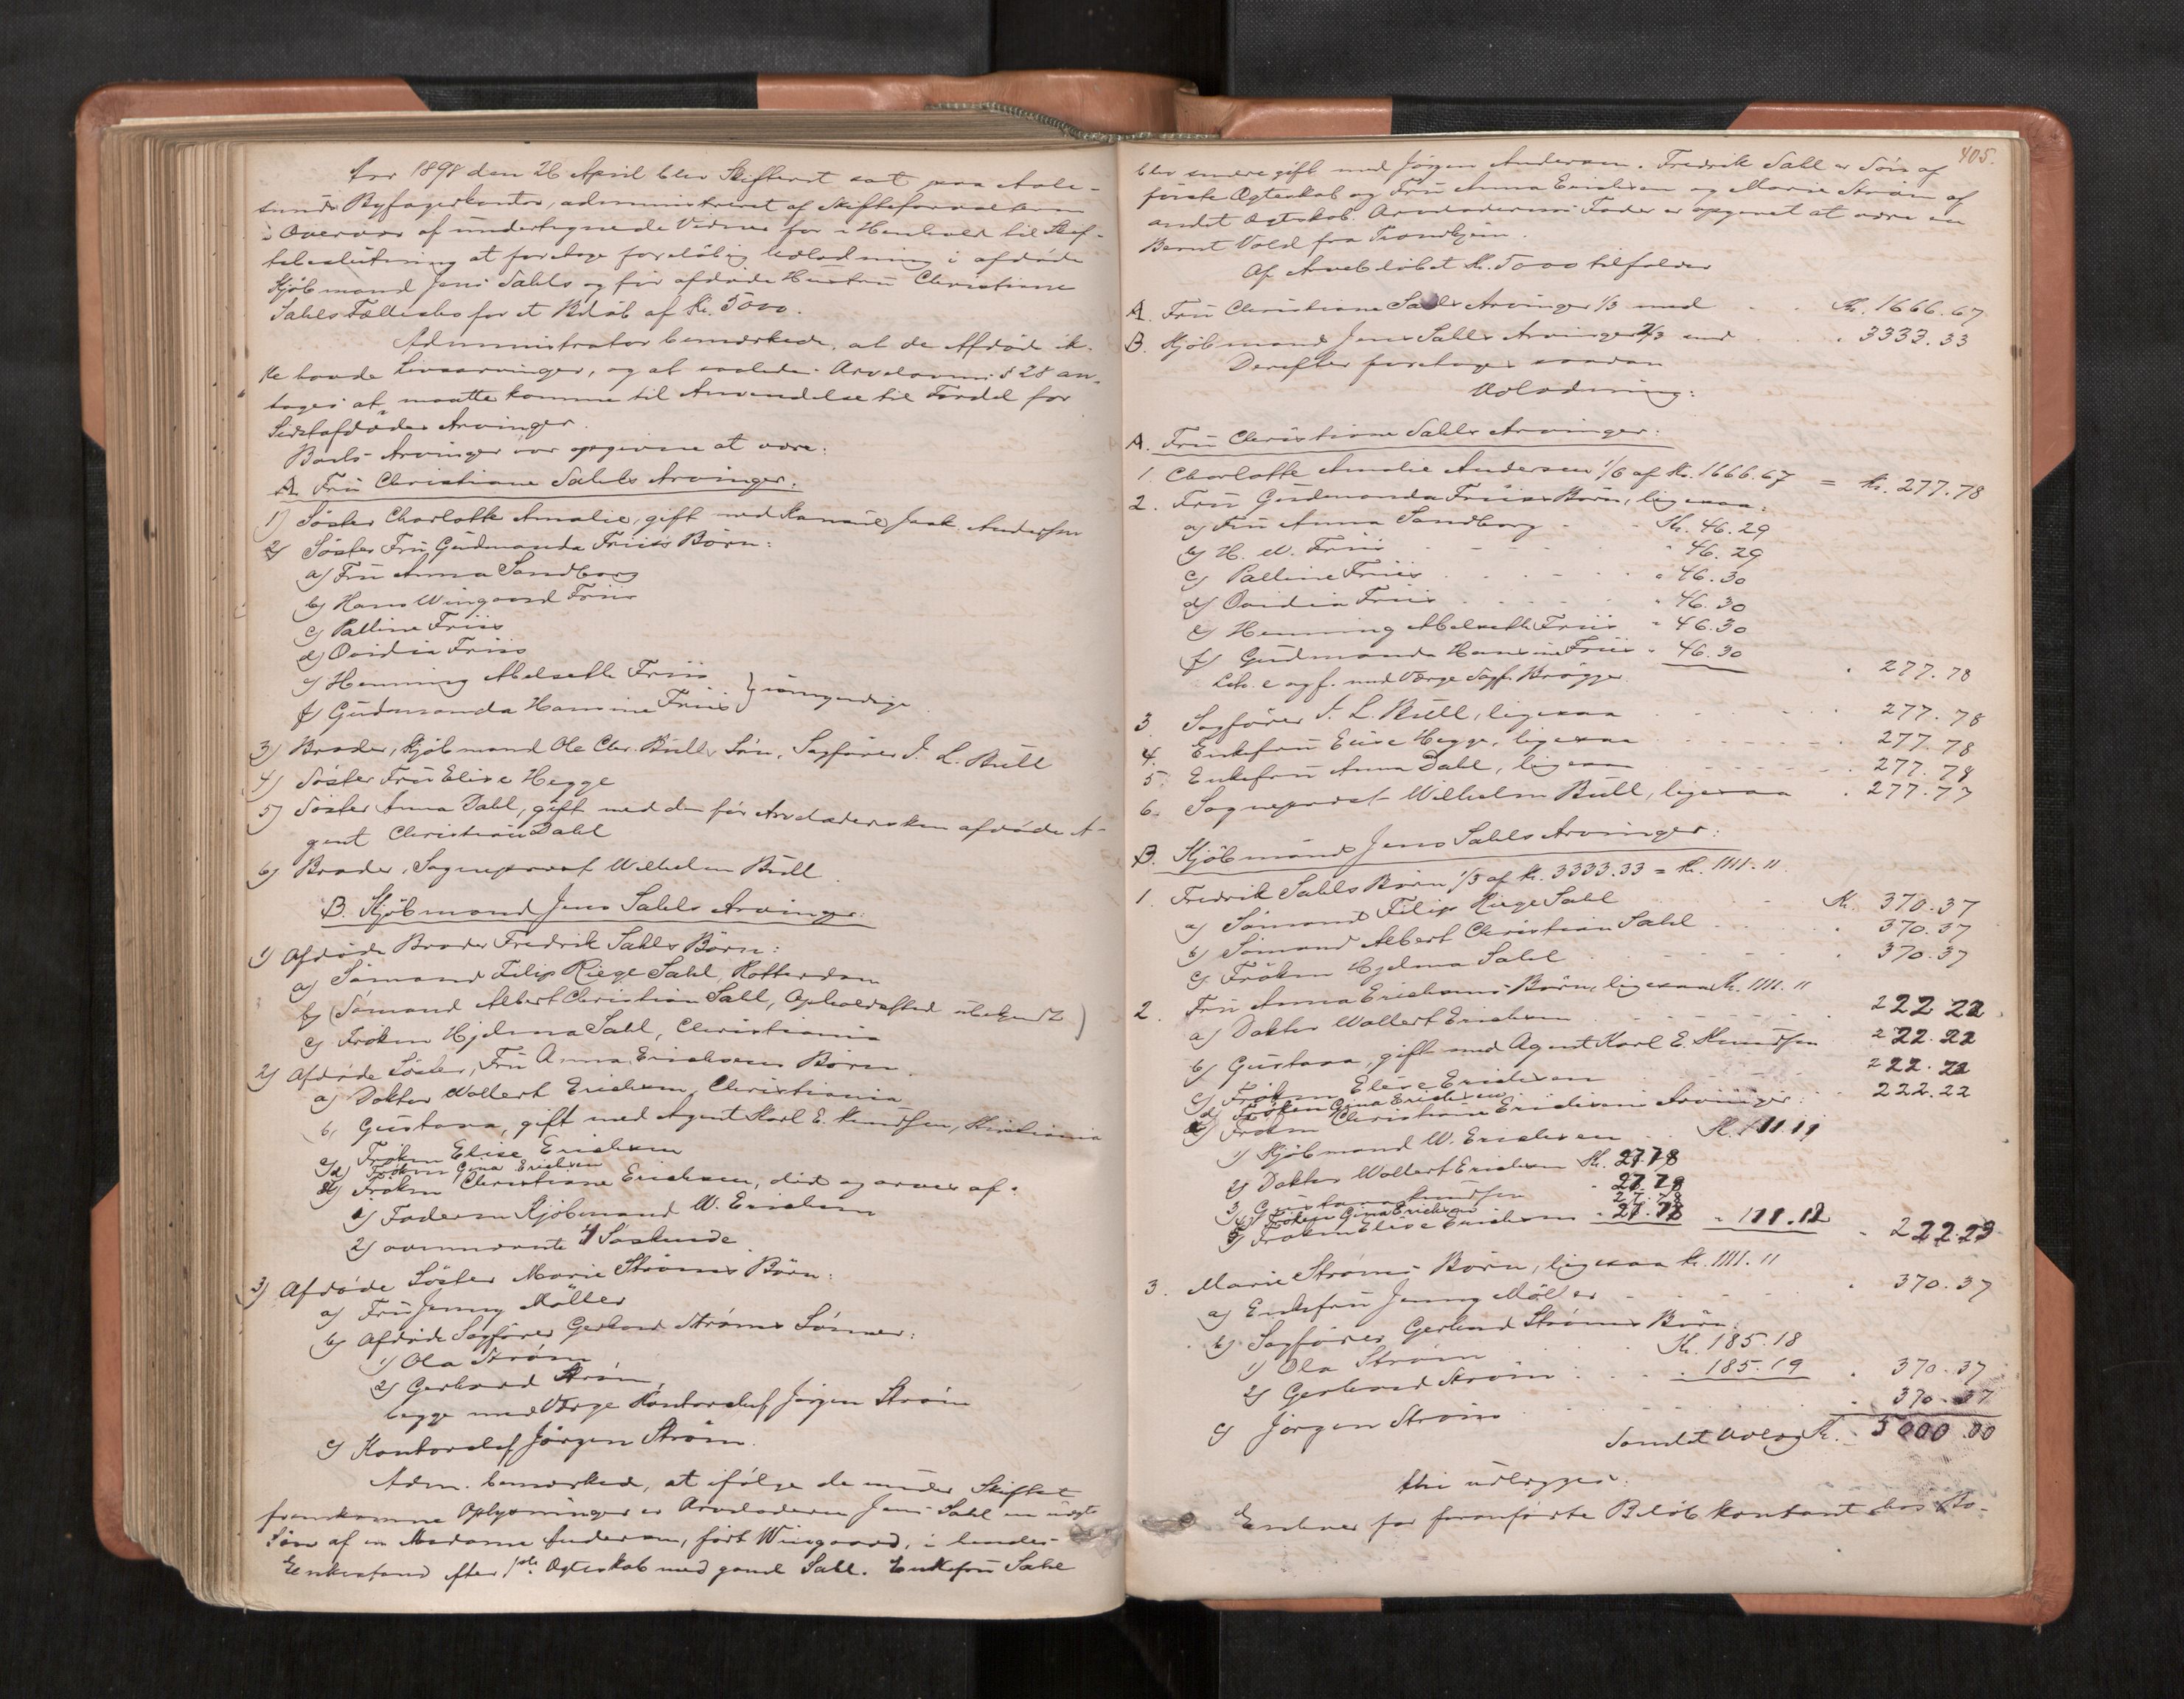 Aar 1898 den 26 April blev Skifteret sat paa Aale-
sunds Byfogedkontor, administreret af Skifteforvalteren
i Overvær af undertegnede Vidner for i Henhold til Skif-
tebeslutning at foretage foreløbig Udlodning i afdøde
Kjøbmand Jens Sahls og før afdøde Hustru Christiane
Sahls Fællesbo for et Beløb af Kr. 5000.
Administrator bemærkede, at de Afdøde ik-
ke havde Livsarvinger, og at saaledes Arvelovens § 28 an-
tages at maatte komme til Anvendelse til Fordel for
Sidstafdødes Arvinger.
Boets Arvinger var opgivne at være:
A. Fru Christiane Sahls Arvinger:
1) Søster Charlotte Amalie, gift med Jaak Andersen
2) Søster Fru Gudmanda Friis's Børn:
a) Fru Anna Sandborg
b) Hans Wingaard Friis
c) Palline Friis
d) Ovidia Friis
e) Henning Abelseth Friis
f) Gudmanda Hansine Friis } umyndige.
3) Broder, Kjøbmand Ole Chr. Bulls Søn, Sagfører J. L. Bull
4) Søster Fru Elise Hegge
5) Søster Anna Dahl, gift med den før Arveladersken afdøde A-
gent Christian Dahl
6) Broder, Sogneprest Wilhelm Bull.
B. Kjøbmand Jens Sahls Arvinger:
1) Afdøde Broder Fredrik Sahls Børn:
a) Sømand Filip Riege Sahl, Rotterdam
b) (Sømand Albert Christian Sahl, Opholdssted ubekjendt)
c) Frøken Hjelma Sahl, Christiania
2) Afdøde Søster, Fru Anna Erichsens Børn.
a) Doktor Wollert Erichsen, Christiania
b) Gustava, gift med Agent Karl E. Knudsen, Kristiania
c) Frøken Elise Erichsen
d) Frøken Gina Erichsen
e) Frøken Christiane Erichsen, død og arves af:
1) Faderen Kjøbmand W. Erichsen
2) ovennævnte 4 Søskende.
3) Afdøde Søster Marie Strøms Børn:
a) Fru Jenny Møller
b) Afdøde Sagfører Gerhard Strøms Sønner:
1) Ola Strøm
2) Gerhard Strøm,
begge med Værge Kontorchef Jørgen Strøm
c) Kontorchef Jørgen Strøm.
Adm. bemærkede, at ifølge de under Skiftet
fremkomne Oplysninger er Arveladeren Jens Sahl en uægte
Søn af en Madame Andersen, født Wingaard, i hendes
Enkestand efter 1ste Ægteskab med gamle Sahl. Enkefru Sahl
405.
blev senere gift med Jørgen Andersen. Fredrik Sahl er Søn af
første Ægteskab og Fru Anna Erichsen og Marie Strøm af
andet Ægteskab. Arveladerens Fader er opgivet at være en
Bernt Vold fra Trondhjem.
Af Arvebeløbet Kr. 5000 tilfalder
A. Fru Christiane Sahls Arvinger 1/3 med . . Kr. 1666.67
B. Kjøbmand Jens Sahls Arvinger 2/3 med . . " 3333.33
Derefter foretages saadan
Udlodning:
A. Fru Christiane Sahls Arvinger:
1. Charlotte Amalie Andersen 1/6 af Kr. 1666.67 = Kr. 277.78
2. Fru Gudmanda Friis's Børn, ligesaa:
a) Fru Anna Sandborg - - Kr. 46.29
b) H. W. Friis - - - " 46.29
c) Palline Friis . . . " 46.30
d) Ovidia Friis . . . " 46.30
e) Henning Abelseth Friis " 46.30
f) Gudmanda Hansine Friis " 46.30 . 277.78
Litr. e og f. med Værge Sagf. Brøgger.
3. Sagfører J. L. Bull, ligesaa . . . 277.78
4. Enkefru Elise Hegge, ligesaa . . . 277.78
5. Enkefru Anna Dahl, ligesaa . . . 277.78
6. Sogneprest Wilhelm Bull, ligesaa . 277.77
B. Kjøbmand Jens Sahls Arvinger:
1. Fredrik Sahls Børn 1/3 af Kr. 3333.33 = Kr. 1111.11
a) Sømand Filip Riege Sahl . . Kr. 370.37
b) Sømand Albert Christian Sahl . . . 370.37
c) Frøken Hjelma Sahl . . . 370.37
2. Fru Anna Erichsens Børn, ligesaa Kr. 1111.11
a) Doktor Wollert Erichsen . . . 222.22
b) Gustava, gift med Agent Karl E. Knudsen 222.22
c) Frøken Elise Erichsen . . . 222.22
d) Frøken Gina Erichsen . . . 222.22
e) Frøken Christiane Erichsens Arvinger:
1) Kjøbmand W. Erichsen . . Kr. 111.11
2) Doktor Wollert Erichsen Kr. 27.78
3) Gustava Knudsen " 27.78
4) Frøken Gina Erichsen 27.78
5) Frøken Elise Erichsen " 27.78 " 111.12 " 222.23
3. Marie Strøms Børn, ligesaa Kr. 1111.11
a) Enkefru Jenny Møller - - - . 370.37
b) Sagfører Gerhard Strøms Børn:
1) Ola Strøm . . . Kr. 185.18
2) Gerhard Strøm . . . " 185.19 . 370.37
c) Jørgen Strøm . . . . 370.37
Samlet Udlæg Kr. 5000.00
Thi udlægges:
Enhver for foranførte Beløb kontant hos Bo-